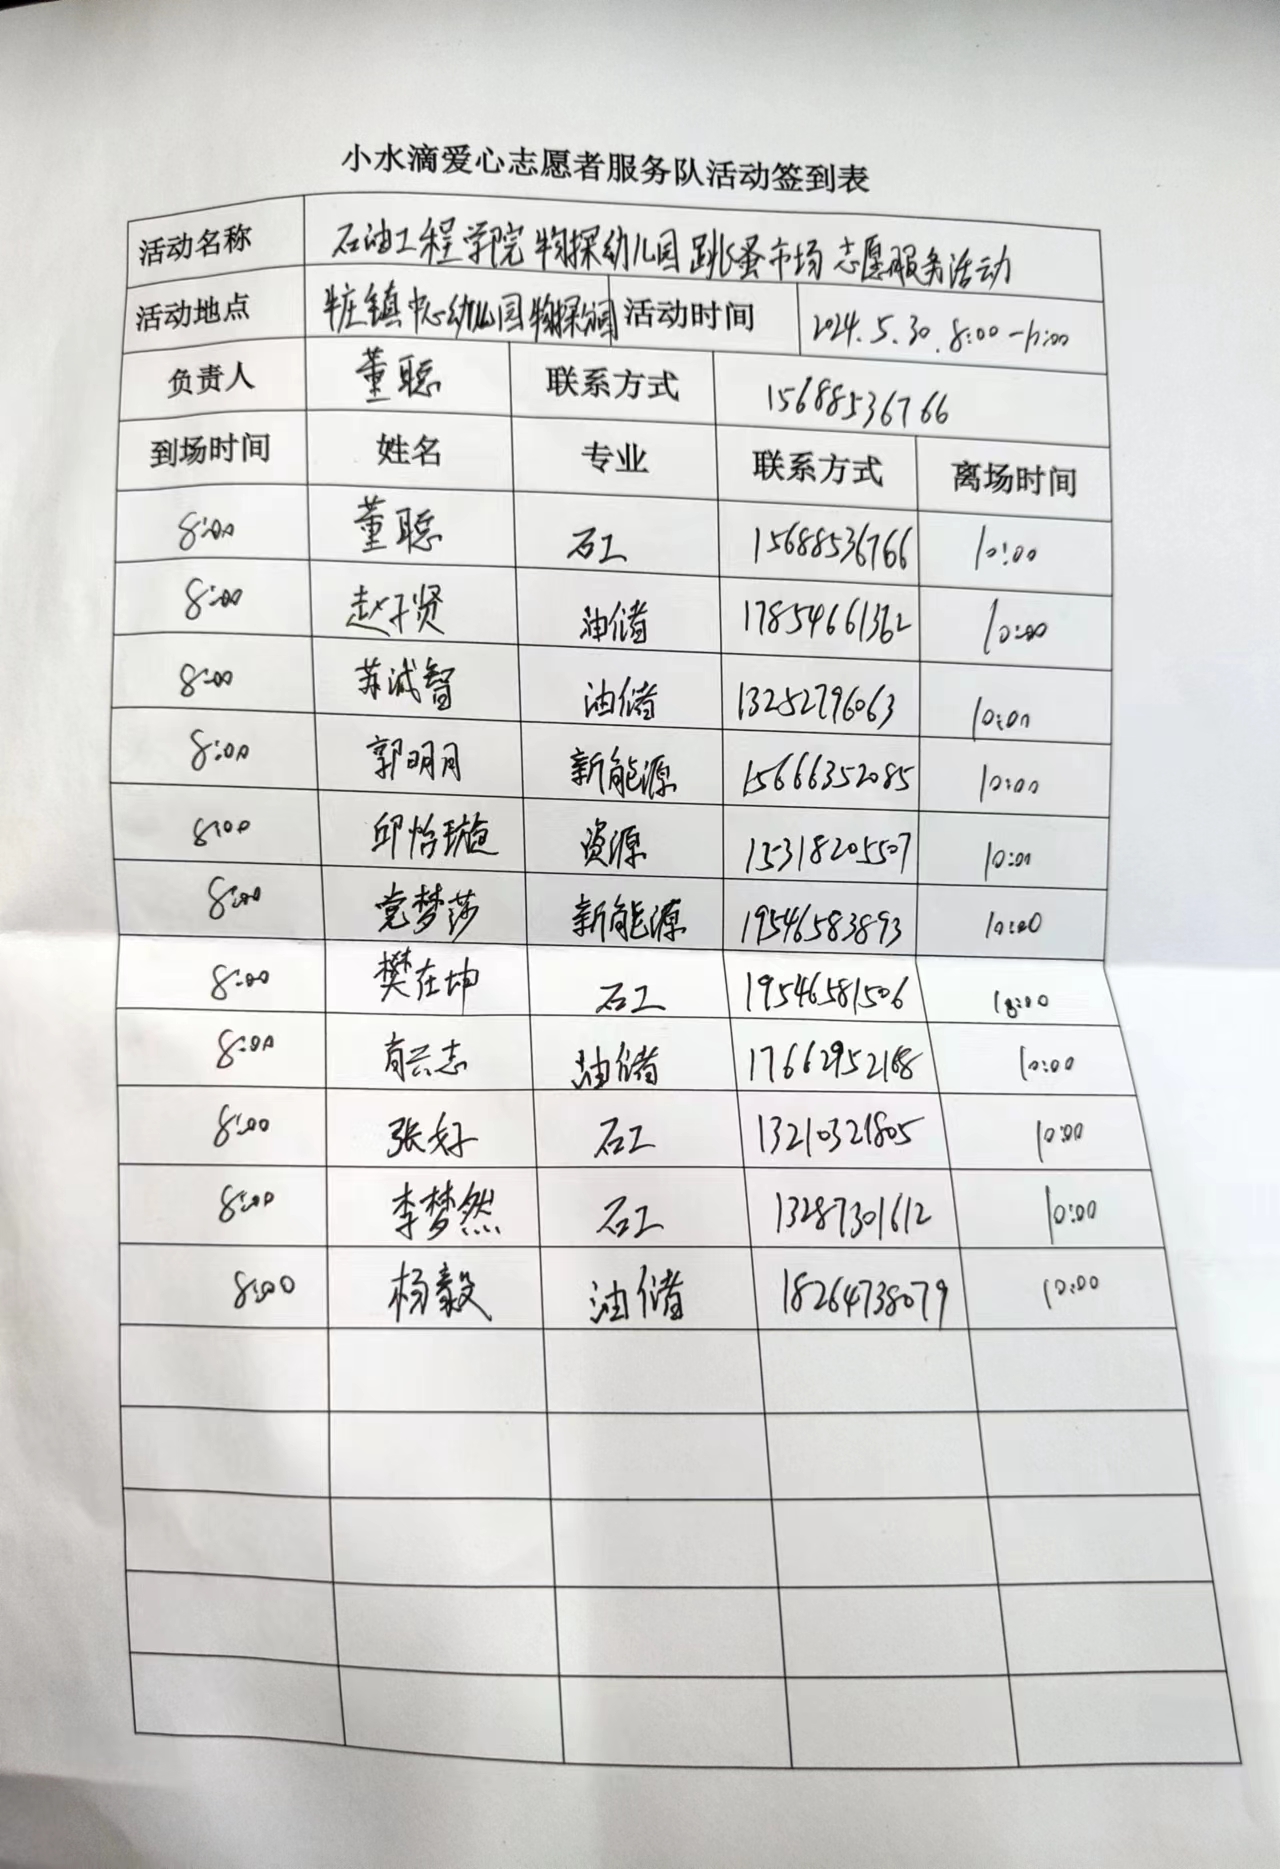 小水滴爱心志愿者服务队活动签到表
活动名称 石油工程学院物探幼儿园跳蚤市场志愿服务活动
活动地点 牛庄镇中心幼儿园物探分园 活动时间 2024.5.30. 8:00-10:00
负责人 董聪 联系方式 15688536766
到场时间 姓名 专业 联系方式 离场时间
8:00 董聪 石工 15688536766 10:00
8:00 赵子贤 油储 17854661362 10:00
8:00 苏诚智 油储 13252796063 10:00
8:00 郭明月 新能源 15666352085 10:00
8:00 邱怡璇 资源 15318205507 10:00
8:00 党梦莎 新能源 19546583893 10:00
8:00 樊在坤 石工 19546581506 10:00
8:00 油储 17662952168 10:00
8:00 张好 石工 13210321805 10:00
8:00 李梦然 石工 13287301612 10:00
8:00 杨毅 油储 18264738079 10:00